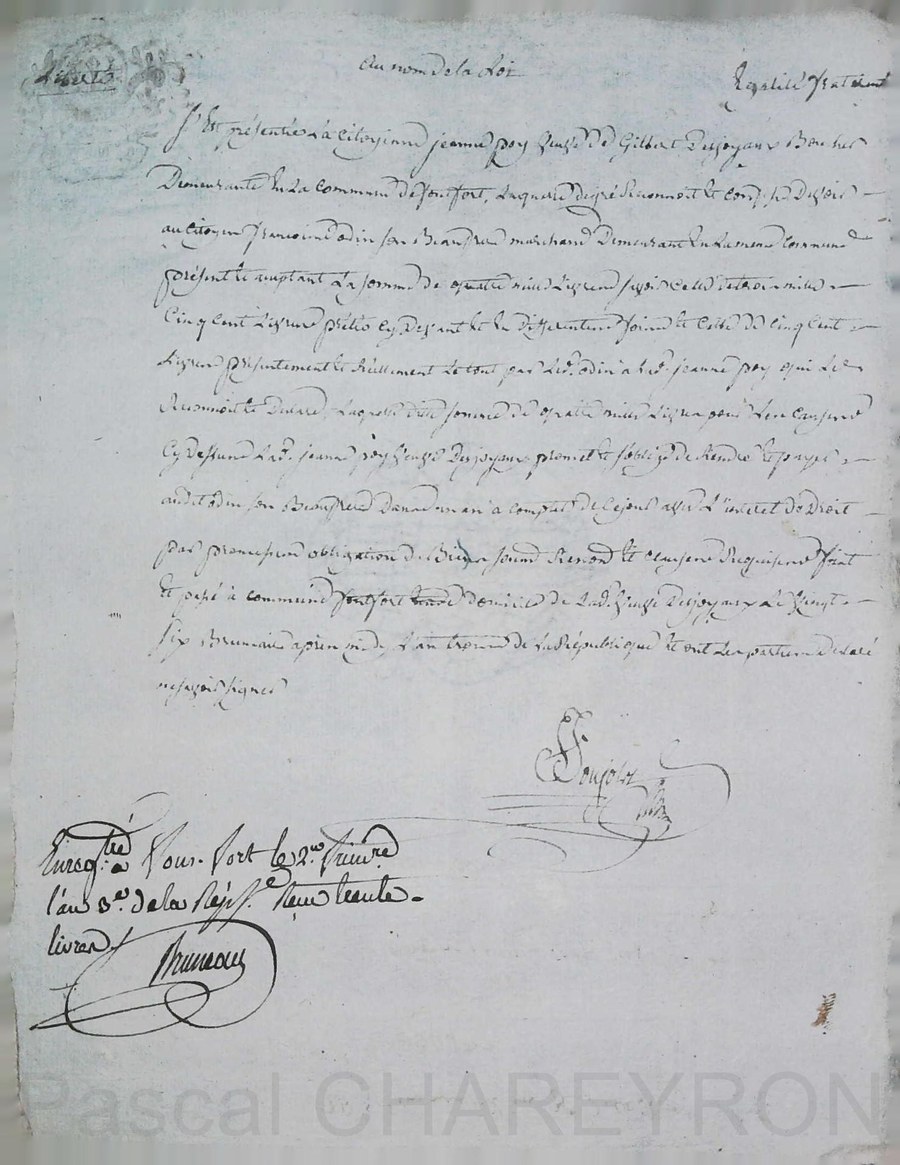 Liberté
au nom de la loi
Egalité fraternité
S'est présentée la Citoyenne jeanne poy veuve de Gilbert Desjoyaux Boucher
Demeurante en la commune de fontfort, laquelle de gré Reconnoit et confesse Devoir
au citoyen francoise odin son Beaufrere marchand Demeurant en la meme Commune
présent et acceptant la somme de quatre mille livres savoir celle de trois mille
Cinq Cent livres prétés cy devant et en differentes fois et celle de cinq Cent
livres présentement et Réellement le tout par led. odin a lad. jeanne poy qui le
Reconnoit et Declare, laquelle somme de quatre mille livres pour les causes
Cy dessus lad. jeanne poy veuve Desjoyaux promet et s'oblige de Rendre et payer
audit odin son Beaufrere Dans un an à compter de ce jour avec l'interet de Droit
par promesses obligation de Biens soumis Renon et clauses Requises fait
et passé à commune fontfort domicile de lad. veuve Desjoyaux le vingt
six Brumaire apres midy l'an troisieme de la République et ont les parties declaré
ne savoir signer
Enregtré a Fons-fort le 2me frimre
l'an 3e. de la Répe. Reçu trente
livres
Bruneau
Pascal CHAREYRON